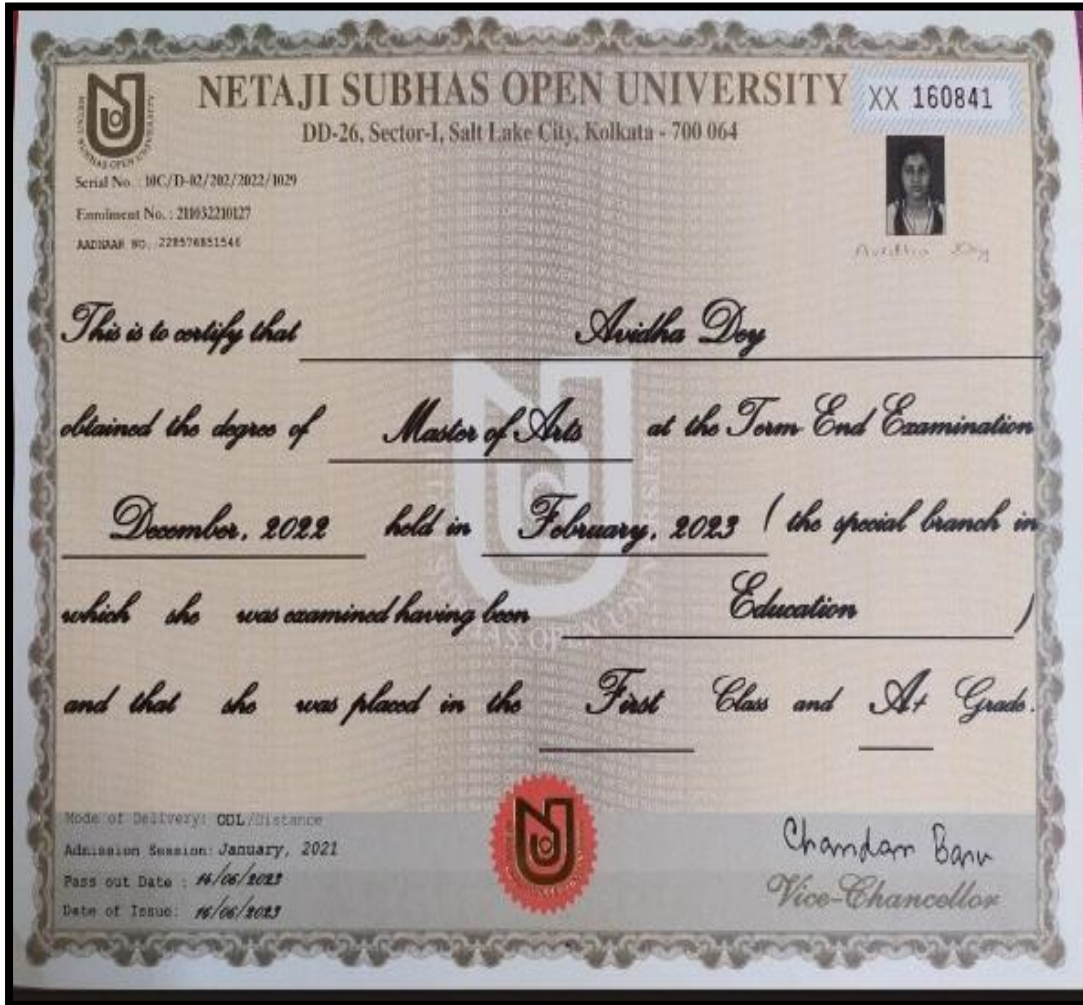 NETAJI SUBHAS OPEN UNIVERSITY
XX 160841
DD-26, Sector-I, Salt Lake City, Kolkata - 700 064
Serial No. : 10C/D-02/202/2022/1029
Enrolment No. : 211032210127
AADHAAR NO. 228576851546
Avidha Dey
This is to certify that Avidha Dey
obtained the degree of Master of Arts at the Term End Examination
December, 2022 held in February, 2023 ( the special branch in
which she was examined having been Education )
and that she was placed in the First Class and A+ Grade.
Mode of Delivery: ODL/Distance
Admission Session: January, 2021
Pass out Date : 16/06/2023
Date of Issue: 16/06/2023
Chandan Basu
Vice-Chancellor